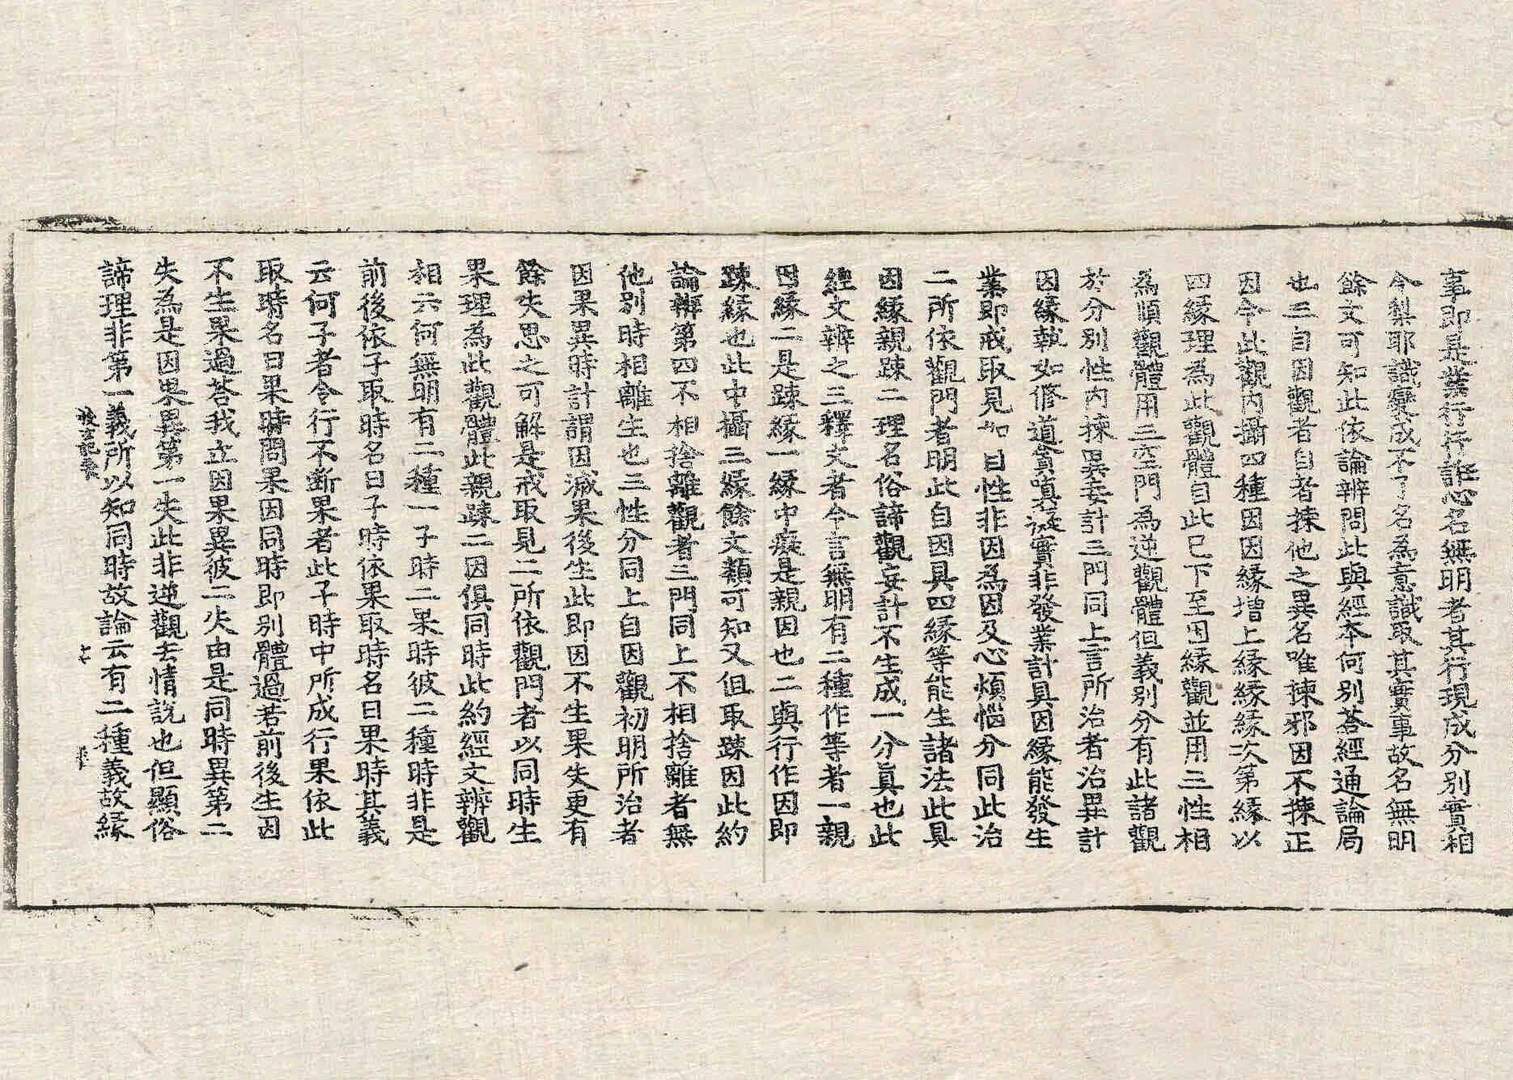 事即是業行行誑心名無明者其行現成分別實相
今梨耶識變成不了名為意識取其實事故名無明
餘文可知此依論辨問此與經本何別荅經通論局
也三自因觀者自者揀他之異名唯揀邪因不揀正
因今此觀內攝四種因因緣增上緣緣緣次第緣以
四緣理為此觀體自此已下至因緣觀並用三性相
為順觀體用三空門為逆觀體但義別分有此諸觀
於分別性內揀異妄計三門同上言所治者治異計
因緣執如修道貪嗔癡實非發業計具因緣能發生
業即戒取見如自性非因為因及心煩惱分同此治
二所依觀門者明此自因具四緣等能生諸法此具
因緣親踈二理名俗諦觀妄計不生成一分真也此
經文辨之三釋文者今言無明有二種作等者一親
因緣二是踈緣一緣中癡是親因也二與行作因即
踈緣也此中攝三緣餘文類可知又但取踈因此約
論辨第四不相捨離觀者三門同上不相捨離者無
他別時相離生也三性分同上自因觀初明所治者
因果異時計謂因滅果後生此即因不生果失更有
餘失思之可解是戒取見二所依觀門者以同時生
果理為此觀體此親踈二因俱同時此約經文辨觀
相云何無明有二種一子時二果時彼二種時非是
前後依子取時名曰子時依果取時名曰果時其義
云何子者令行不斷果者此子時中所成行果依此
取時名曰果時問果因同時即別體過若前後生因
不生果過荅我立因果異彼二失由是同時異第二
失為是因果異第一失此非逆觀去情說也但顯俗
諦理非第一義所以知同時故論云有二種義故緣